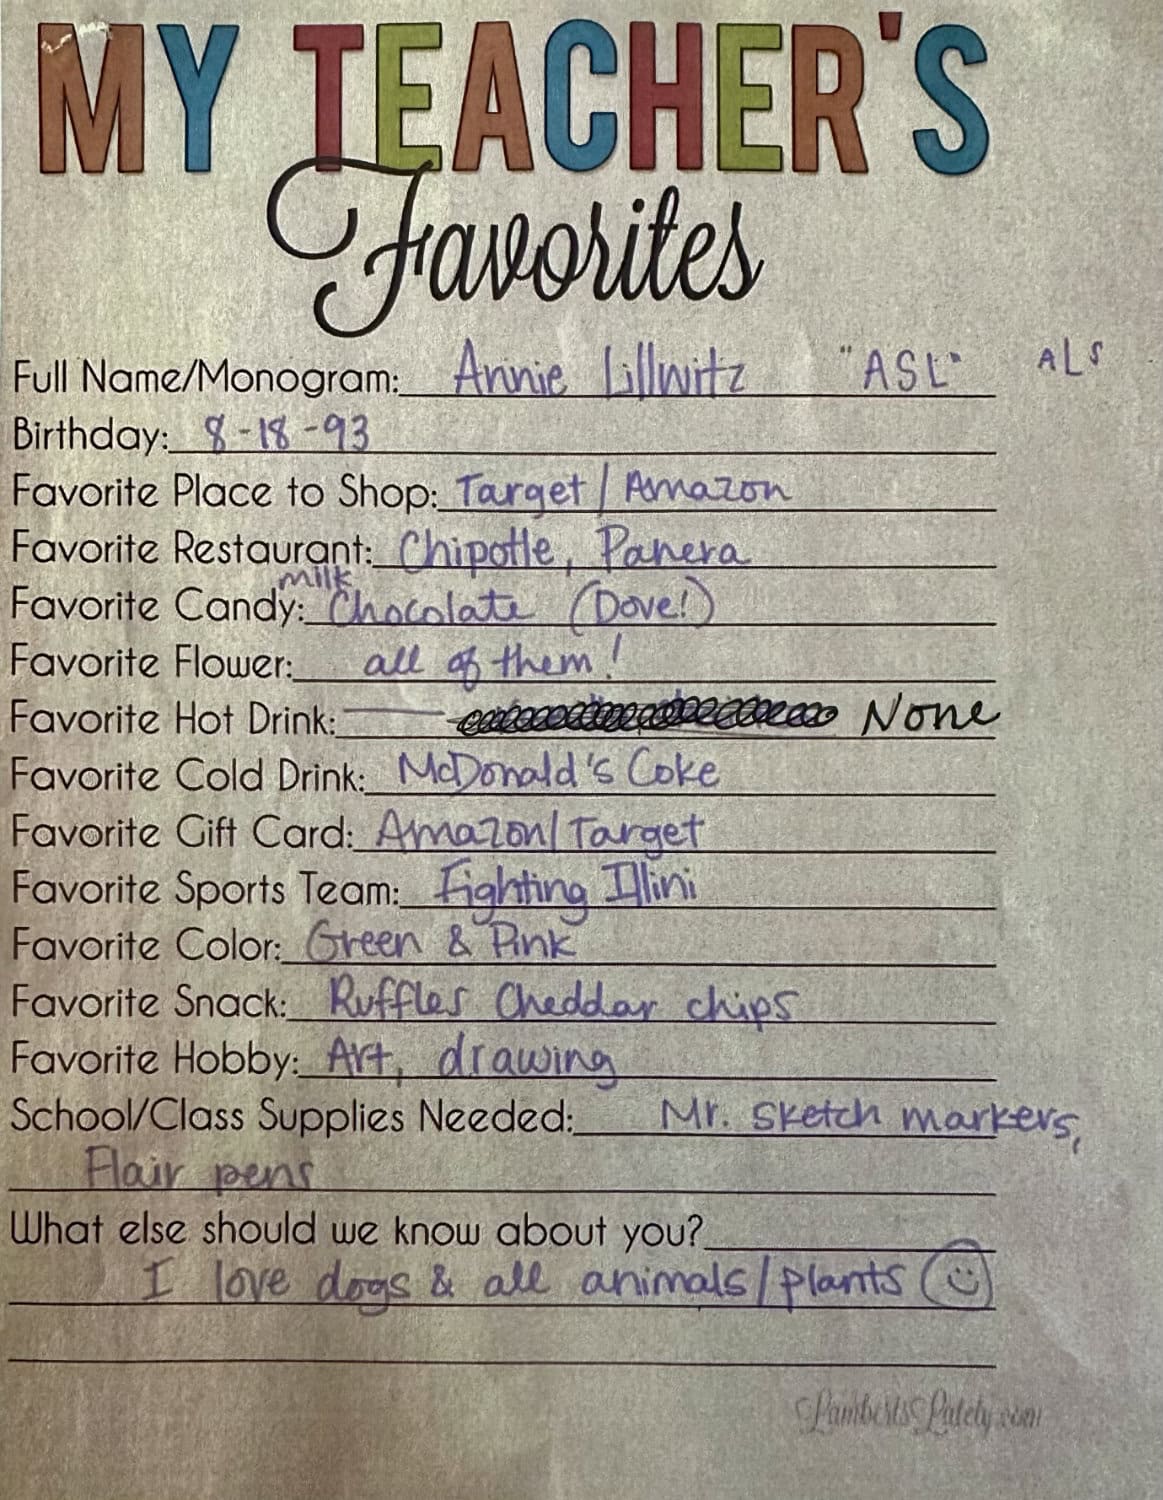 MY TEACHER'S
Favorites
Full Name/Monogram: Annie Lillwitz "ASL" ALS
Birthday: 8-18-93
Favorite Place to Shop: Target / Amazon
Favorite Restaurant: Chipotle, Panera
milk
Favorite Candy: Chocolate (Dove!)
Favorite Flower: all of them!
Favorite Hot Drink: None
Favorite Cold Drink: McDonald's Coke
Favorite Gift Card: Amazon/Target
Favorite Sports Team: Fighting Illini
Favorite Color: Green & Pink
Favorite Snack: Ruffles Cheddar chips
Favorite Hobby: Art, drawing
School/Class Supplies Needed: Mr. Sketch markers,
Flair pens
What else should we know about you?
I love dogs & all animals/plants
LambertsLately.com